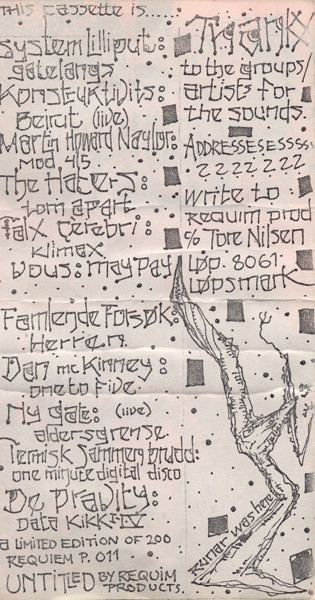 This cassette is.....
System lilliput:
gatelangs
Konstruktivits:
Beirut (live)
Martin Howard Naylor:
Mod 4/5
The Haters:
torn apart
Falx Cerebri:
Klimax
Vous: may pay
Famlende Forsøk:
Herren
Dan mc Kinney:
one to five
Ny gate: (live)
aldersgrense
Termisk Sammenbrudd:
one minute digital disco
De Pravity:
Data Kikk: IV
a LIMITED EDITION OF 200
REQUIEM P. 011
UNTITLED BY REQUIM
PRODUCTS.
Thanks
to the groups/
artists for
the sounds.
ADDRESSESESSSS
ZZZZZZZ
write to
Requim prod
c/o Tore Nilsen
Løp. 8061.
Løpsmark
was here